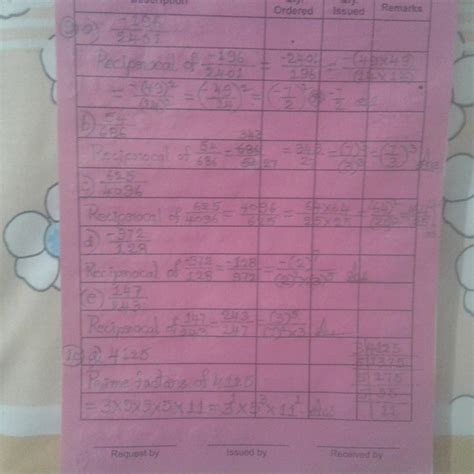 Description Qty. Ordered Qty. Issued Remarks
9) a) -196/2401
Reciprocal of -196/2401 = -2401/196 = -(49×49)/(14×14)
= -(49)²/(14)² = (-49/14)² = (-7/2)² -7/2
b) 54/686
Reciprocal of 54/686 = 686/54 343 27 = 343/27 = (7)³/(3)³ = (7/3)³ Ans
c) 625/4096
Reciprocal of 625/4096 = 4096/625 = 64×64/25×25 = (64)²/(25)² =
d) -972/128
Reciprocal of -972/128 = -128/972 = Ans
e) 147/243
Reciprocal of 147/243 = 243/147 = (3)⁵/ Ans
10) a) 4125
Prime factors of 4125
= 3×5×5×5×11 = 3¹×5³×11¹ Ans
3 4125
5 1375
5 275
5 55
11
Request by Issued by Received by